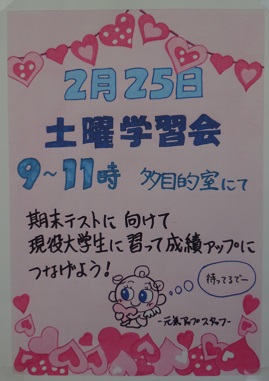 2月25日
土曜学習会
9〜11時 多目的室にて
期末テストに向けて
現役大学生に習って成績アップに
つなげよう!
待ってるでー
-元気アップスタッフ-